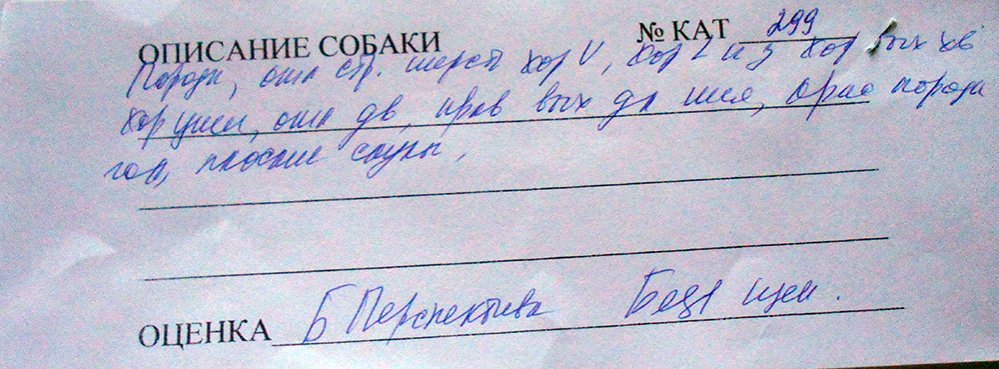 ОПИСАНИЕ СОБАКИ № КАТ 299
Породн, отл стр. шерсть хор V, хор L и з хор вых хв
хор углы, отл дв, прав вых да шея, ярко породн
гол, плоские скулы,
ОЦЕНКА Б Перспектива Бест щен.